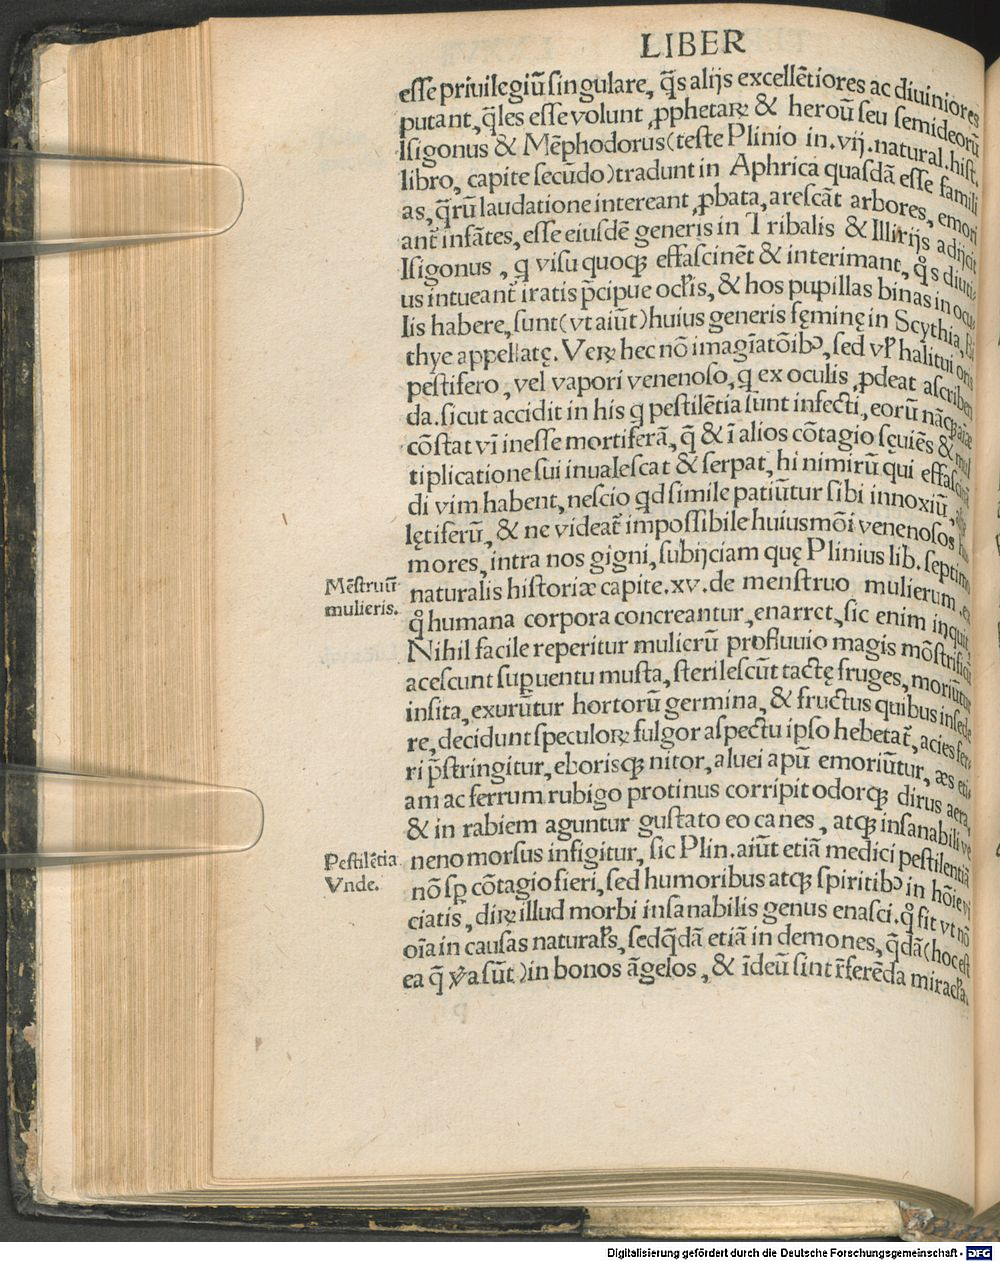 LIBER
esse priuilegiū singulare, q̄s alijs excellētiores ac diuiniores
putant, q̄les esse volunt ꝓphetaꝝ & heroū seu semideorū
Isigonus & Mēphodorus (teste Plinio in .vij. natural. hist.
libro, capite secūdo) tradunt in Aphrica quasdā esse famili
as, q̄rū laudatione intereant ꝓbata, arescāt arbores, emori
ant̄ infātes, esse eiusdē generis in Tribalis & Illirijs adijcit
Isigonus, q visu quoqꝫ effascinēt & interimant, q̊s diuti⸗
us intueant̄ iratis p̄cipue ocłis, & hos pupillas binas in ocu⸗
lis habere, sunt (vt aiūt) huius generis fęminę in Scythia, Bi
thye appellatę. Veꝝ hec nō imagīatōibꝰ, sed vł halitui oris
pestifero, vel vapori venenoso, q ex oculis ꝓdeat ascriben
da. sicut accidit in his q pestilētia sunt infecti, eorū nācꝫ aīæ
cōstat vī inesse mortiferā, q̄ & ī alios cōtagio sęuiēs & mul
tiplicatione sui inualescat & serpat, hi nimirū qui effascinā
di vim habent, nescio qd simile patiūtur sibi innoxiū,
lętiferū, & ne videat̄ impossibile huiusmōi venenosos hu
mores, intra nos gigni, subijciam quę Plinius lib. septimo
Mēstruū
mulieris.
naturalis historiæ capite .xv. de menstruo mulierum. ex
q̊ humana corpora concreantur, enarret, sic enim inquit,
Nihil facile reperitur mulierū profluuio magis mōstrificū
acescunt suꝑuentu musta, sterilescūt tactę fruges, moriūtur
insita, exurūtur hortorū germina, & fructus quibus insede
re, decidunt speculoꝝ fulgor aspectu ipso hebetat̄, acies fer⸗
ri p̄stringitur, eborisqꝫ nitor, aluei apū emoriūtur, æs eti⸗
am ac ferrum rubigo protinus corripit odorqꝫ dirus aera,
& in rabiem aguntur gustato eo canes, atqꝫ insanabili ve
Pestilētia
Vnde.
neno morsus infigitur, sic Plin. aiūt etiā medici pestilentiā
nō sꝑ cōtagio fieri, sed humoribus atqꝫ spiritibꝰ in hōie vi
ciatis, diꝝ illud morbi insanabilis genus enasci. q̊ fit vt nō
oīa in causas naturałs, sed q̄dā etiā in demones, q̄dā (hoc est
ea q̄ ꝟa sūt) in bonos āgelos, & īdeū sint r̄ferēda miracła.
Digitalisierung gefördert durch die Deutsche Forschungsgemeinschaft - DFG